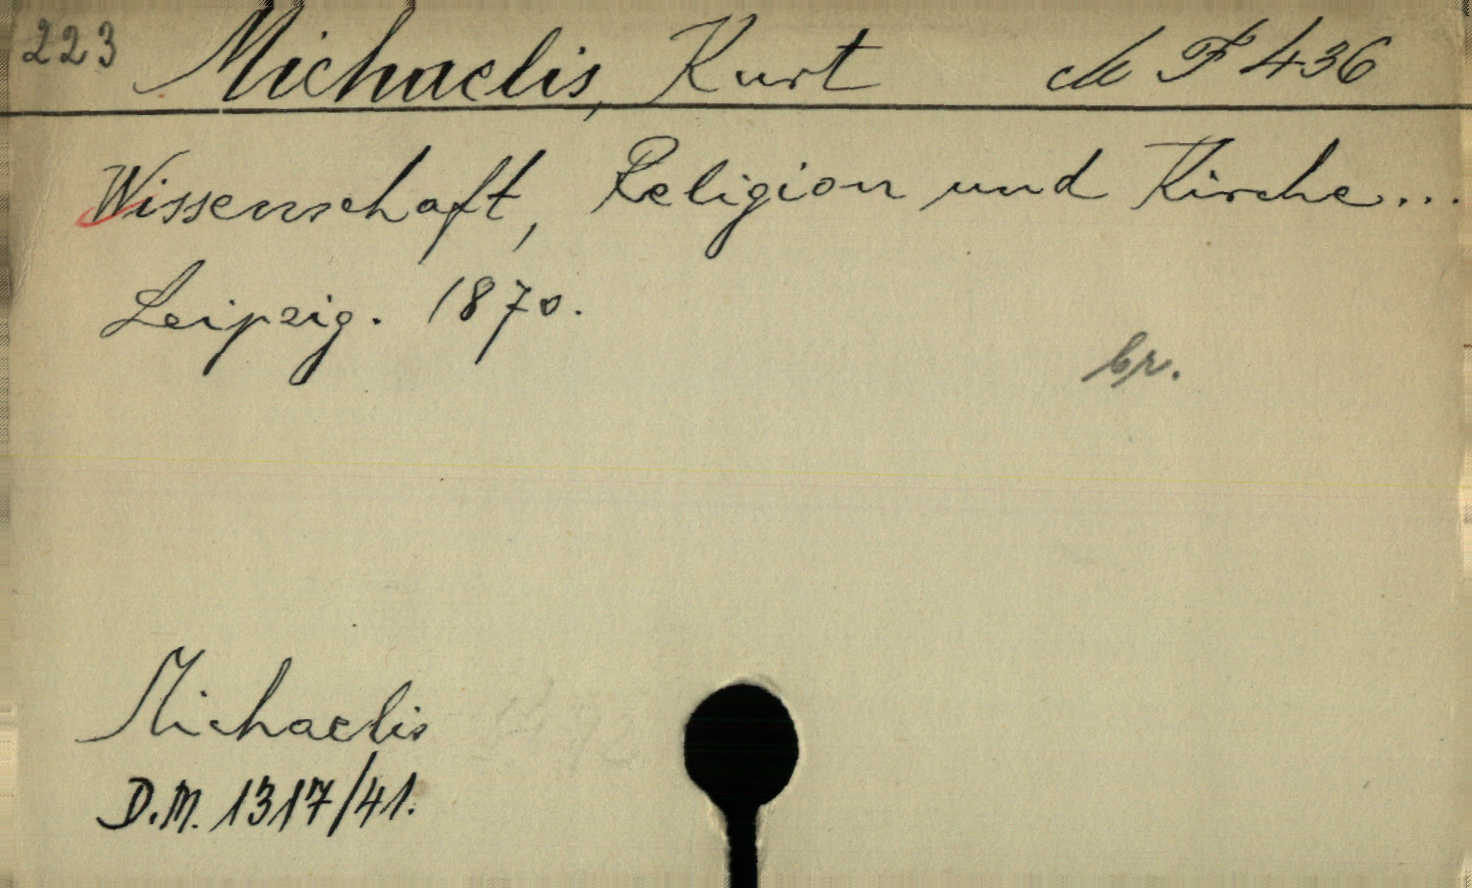 223 Michaelis, Kurt de F 436
Wissenschaft, Religion und Kirche...
Leipzig. 1870.
br.
Michaelis
D.M. 1317/41.